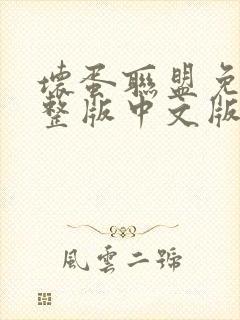 壞蛋聯盟免
整版中文版
風雲二號